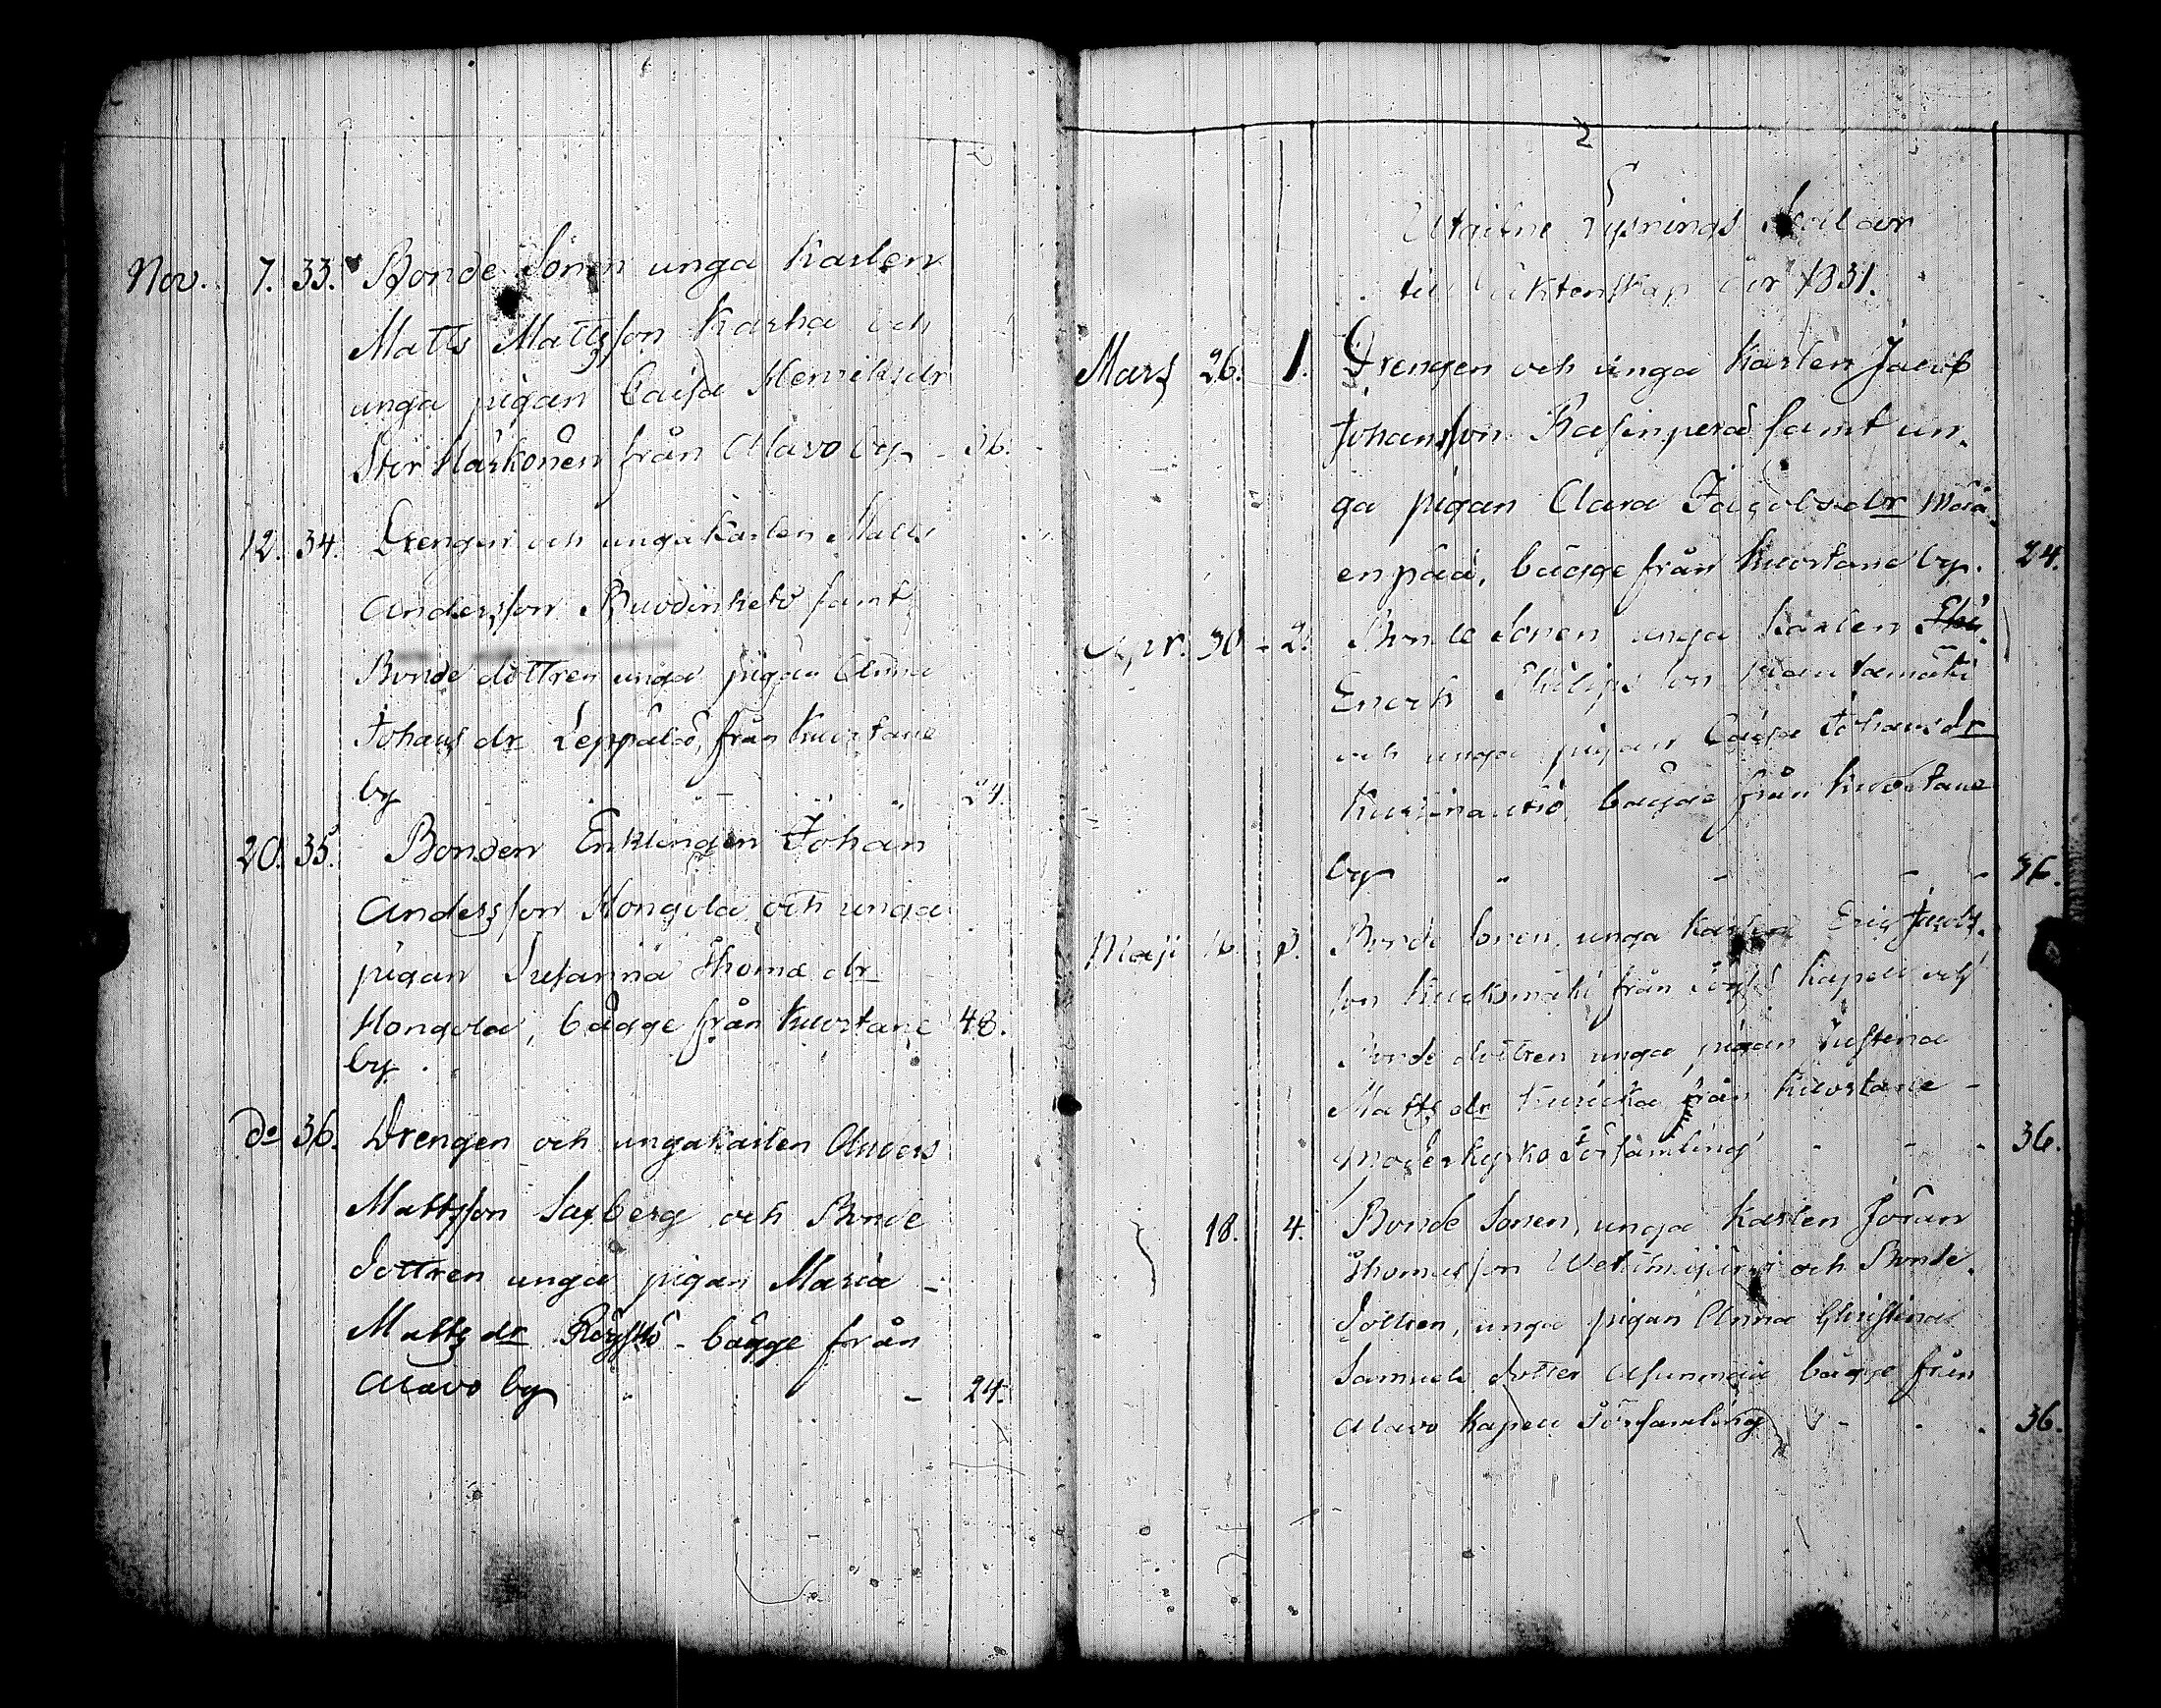 Nov. 7. 33. Bonde Sonen unga Karlen
Matts Mattsson Karha och
unga pigan Caisa Henriksdr
Stor Härkönen från Alavo by - 36.
12. 34. Drengen och unga Karlen Matts
Andersson Ruodinheto samt
Bonde dottren unga pigan Anna
Johans dr Leppälä, från Kuortane
by 24.
20. 35. Bonden Enklingen Johan
Andersson Hongola och unga
pigan Susanna Thomæ dr
Hongola, bägge från Kuortane 48.
by.
do 36. Drengen och unga karlen Anders
Mattsson Saxberg och Bonde
dottren unga pigan Maria -
Matts dr Röyskö - bägge från
Alavo by - 24.
2
Utgifne Lysnings Sedlar
till äktenskap år 1831.
Mars 26. 1. Drengen och unga Karlen Jacob
Johansson Rasinperä samt un-
ga pigan Clara Jacobsdr Mää-
enpää, bägge från Kuortane by. 24.
Apr. 30 - 2. Bonde Sonen unga Karlen
Enoch Philipsson Rautamäki
och unga pigan Caisa Johansdr
bägge från Kuortane
by - - - 36.
Maji 16. 3. Bonde Sonen, unga Karlen Eric Jacobs-
son Kuoksmäki från Kapell och
Bonde dottren unga pigan Justina
Matts dr Kuricka från Kuortane -
Moderkyrko Församling - - - 36.
18. 4. Bonde Sonen, unga Karlen Jöran
Thomasson Wetämäjärvi och Bonde-
dottren, unga pigan Anna Christina
Samuels dotter Asunmaa bägge från
Alavo Kapell Församling - - - 36.